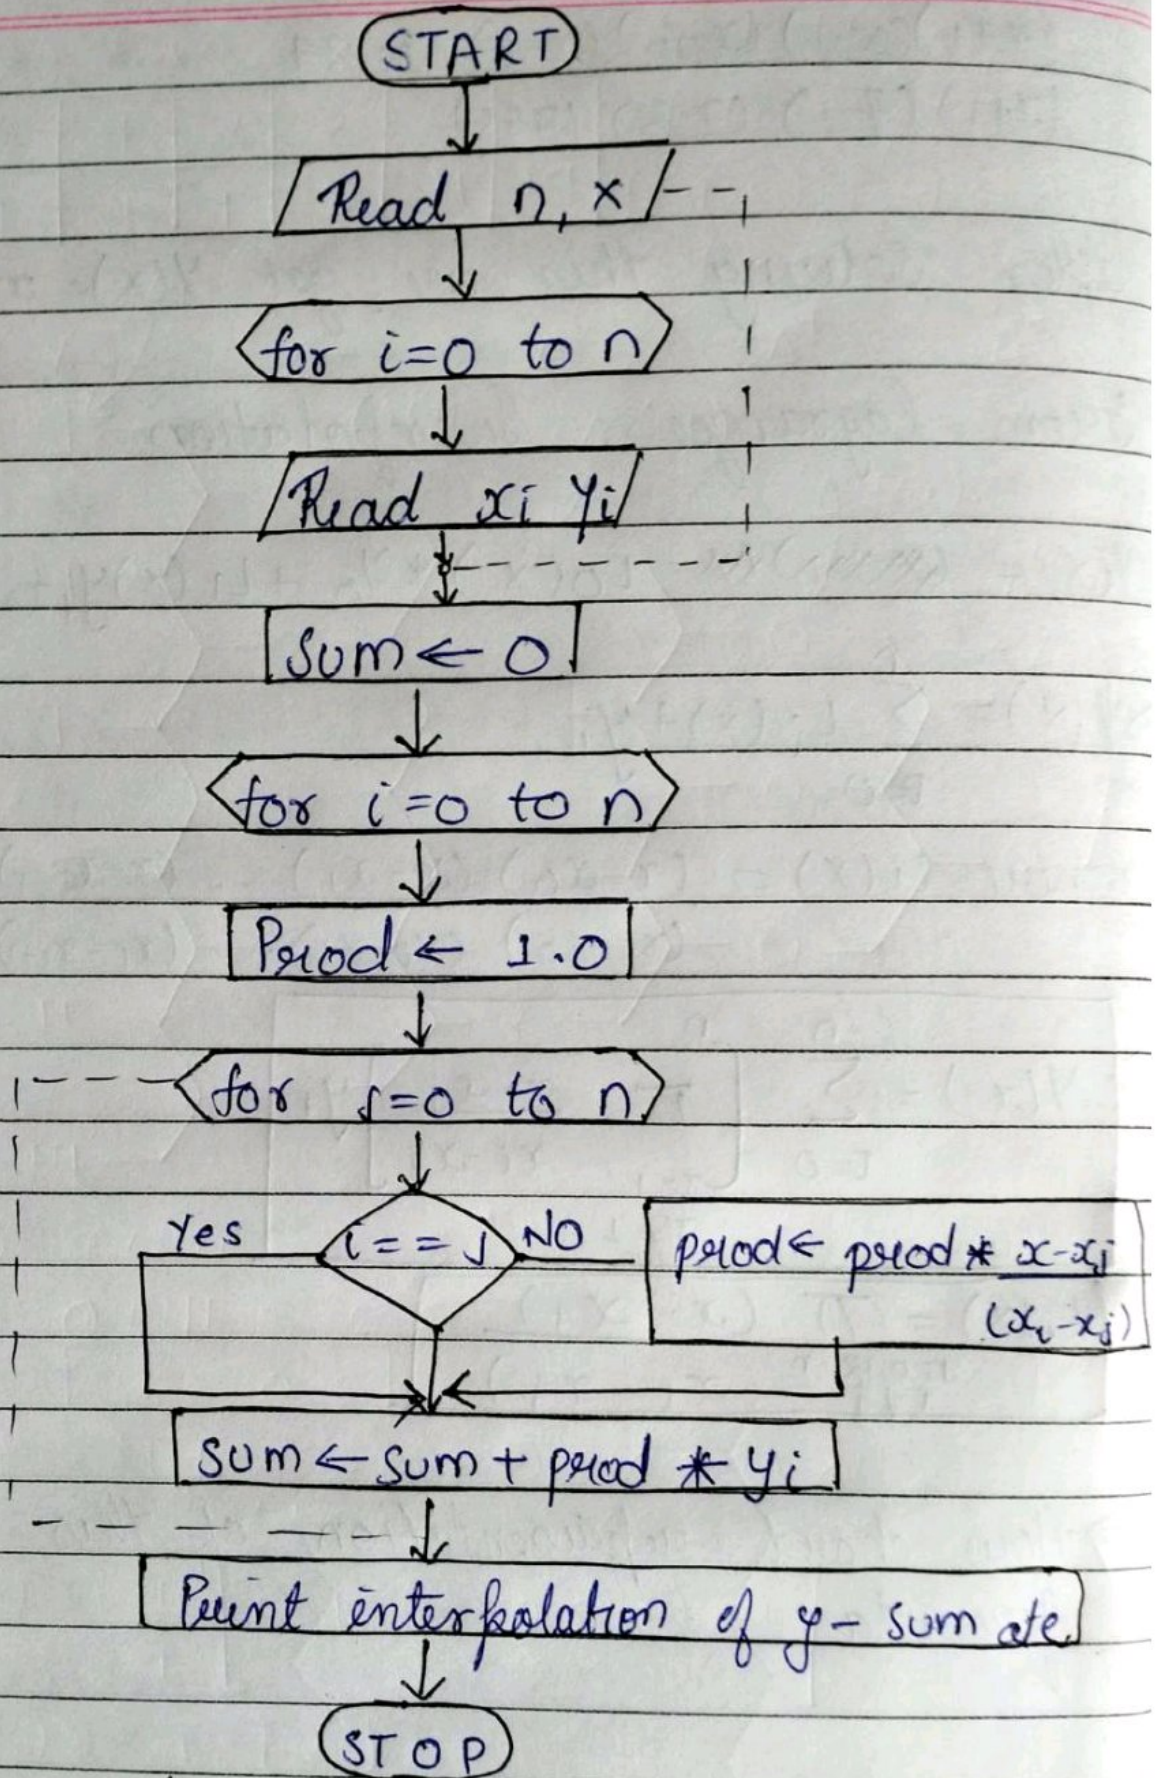 START
Read n, x
for i=0 to n
Read xi yi
Sum ← 0
for i=0 to n
Prod ← 1.0
for j=0 to n
Yes i==j NO prod ← prod * x-xj
(xi-xj)
sum ← sum + prod * yi
Print interpolation of y - sum
STOP